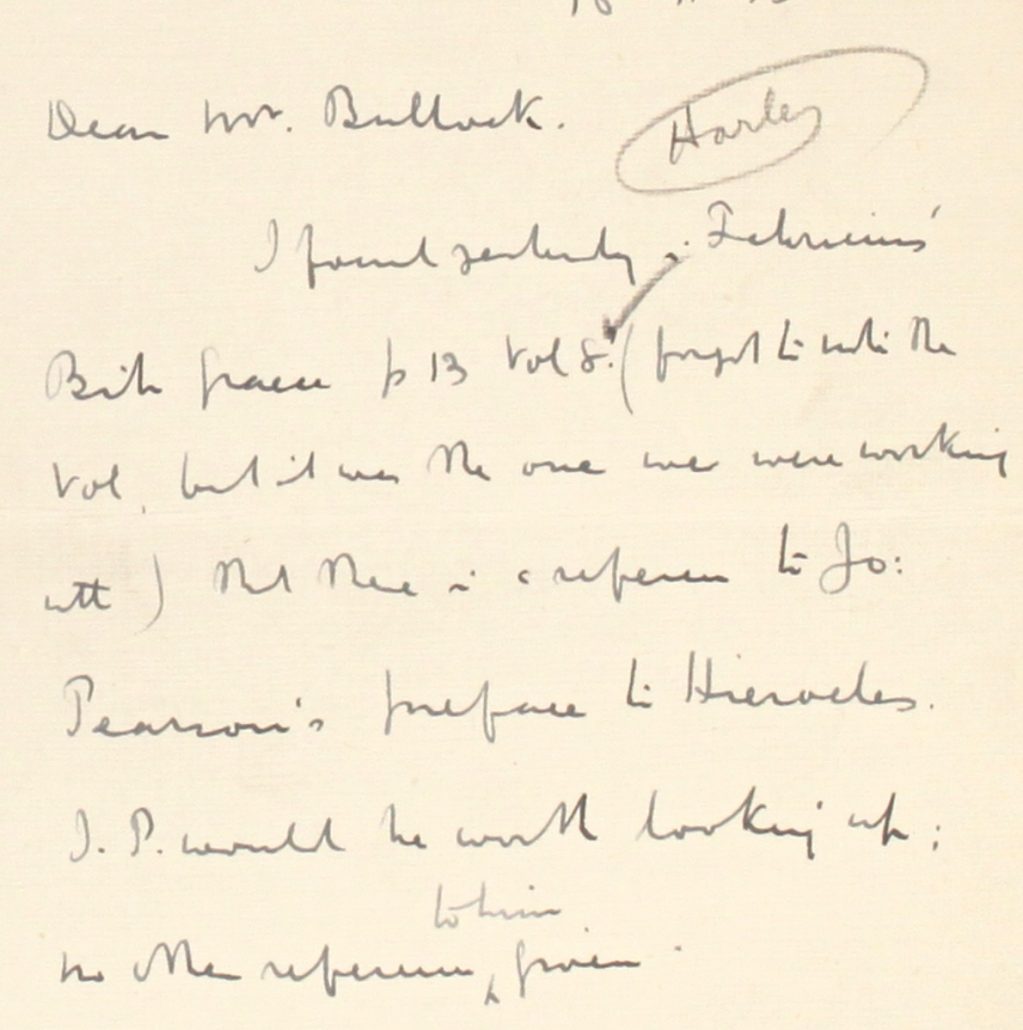 Dear Mr. Bullock.
Harley
I found yesterday in Fabricius'
Bib graeca p 13 Vol 8. (forgot to note the
Vol, but it was the one we were working
with) that there is a reference to Jo:
Pearson's preface to Hierocles.
J. P. would be worth looking up;
to him
no other reference, given